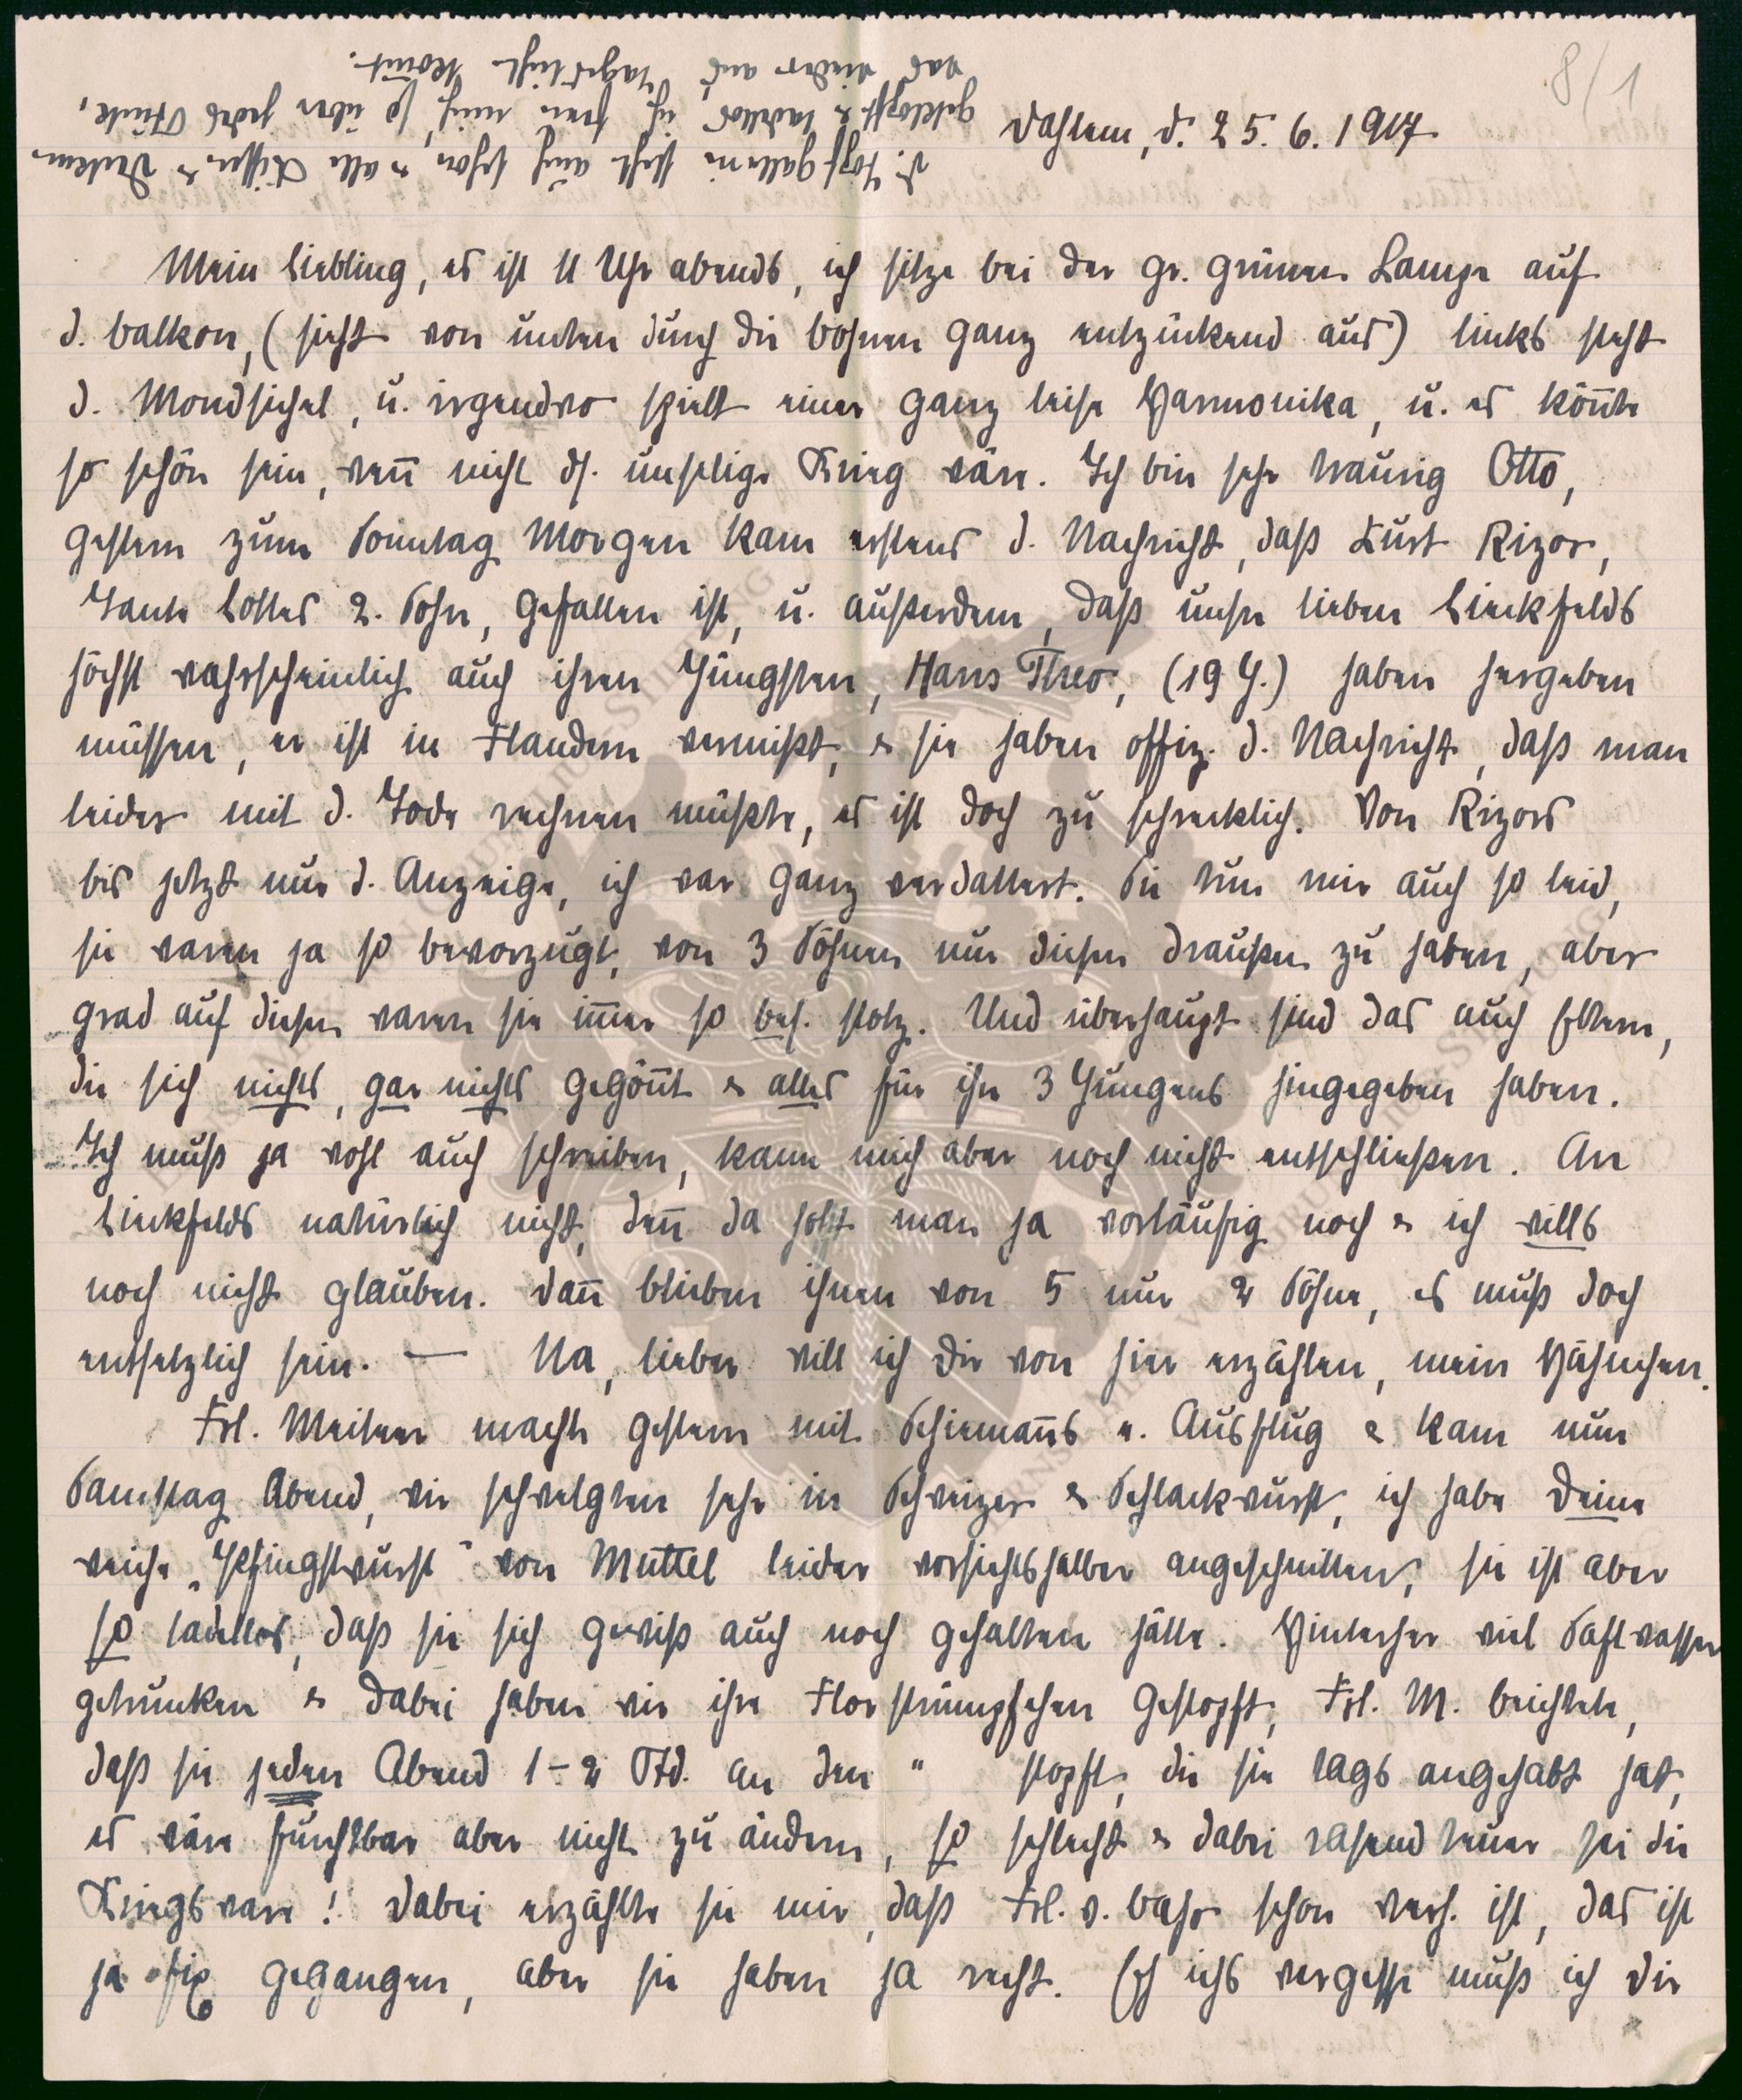 8/1
Dahlem, d. 25. 6. 1917.
d. Topfgallerie steht auch schon & alle Kissen & Decken
geklopft & tadellos, ich freu mich so über jedes Stück,
das wieder ans Tageslicht kom̄t.
Mein Liebling, es ist 11 Uhr abends, ich sitze bei der gr. grünen Lampe auf
d. Balkon, (sieht von unten durch die Bohnen ganz entzückend aus) links steht
d. Mondsichel, u. irgendwo spielt einer ganz leise Harmonika, u. es kön̄te
so schön sein, wen̄ nicht ds. unselige Krieg wäre. Ich bin sehr traurig Otto,
gestern zum Sonntag Morgen kam erstens d. Nachricht, daß Kurt Rizor,
Tante Lottes 2. Sohn, gefallen ist, u. außerdem, daß unsre lieben Lieckfelds
höchst wahrscheinlich auch ihren Jüngsten, Hans Theo, (19 J.) haben hergeben
müssen, er ist in Flandern vermißt, & sie haben offiz. d. Nachricht, daß man
leider mit d. Tode rechnen müßte, es ist doch zu schrecklich. Von Rizors
bis jetzt nur d. Anzeige, ich war ganz verdattert. Sie tun mir auch so leid,
sie waren ja so bevorzugt, von 3 Söhnen nur diesen draußen zu haben, aber
grad auf diesen waren sie im̄er so bes. stolz. Und überhaupt sind das auch Eltern,
die sich nichts, gar nichts gegön̄t & alles für ihre 3 Jungens hingegeben haben.
Ich muß ja wohl auch schreiben, kann mich aber noch nicht entschließen. An
Lieckfelds natürlich nicht, den̄ da hofft man ja vorläufig noch & ich wills
noch nicht glauben. Dan̄ blieben ihnen von 5 nur 2 Söhne, es muß doch
entsetzlich sein. — Na, lieber will ich Dir von hier erzählen, mein Hähnchen.
Frl. Meitner machte gestern mit Schieman̄s e. Ausflug & kam nun
Samstag Abend, wir schwelgten sehr in Schweizer & Schlackwurst, ich habe Deine
weiche „Pfingstwurst" von Muttel leider vorsichtshalber angeschnitten, sie ist aber
so tadellos, daß sie sich gewiß auch noch gehalten hätte. Hinterher viel Saftwasser
getrunken & dabei haben wir ihre Florstrümpfchen gestopft, Frl. M. beichtete,
daß sie jeden Abend 1-2 Std. an den " stopft, die sie tags angehabt hat,
es wäre furchtbar aber nicht zu ändern, so schlecht & dabei rasend teuer sei die
Kriegsware! Dabei erzählte sie mir, daß Frl. v. Bahr schon verh. ist, das ist
ja fix gegangen, aber sie haben ja recht. Eh ichs vergesse muß ich Dir